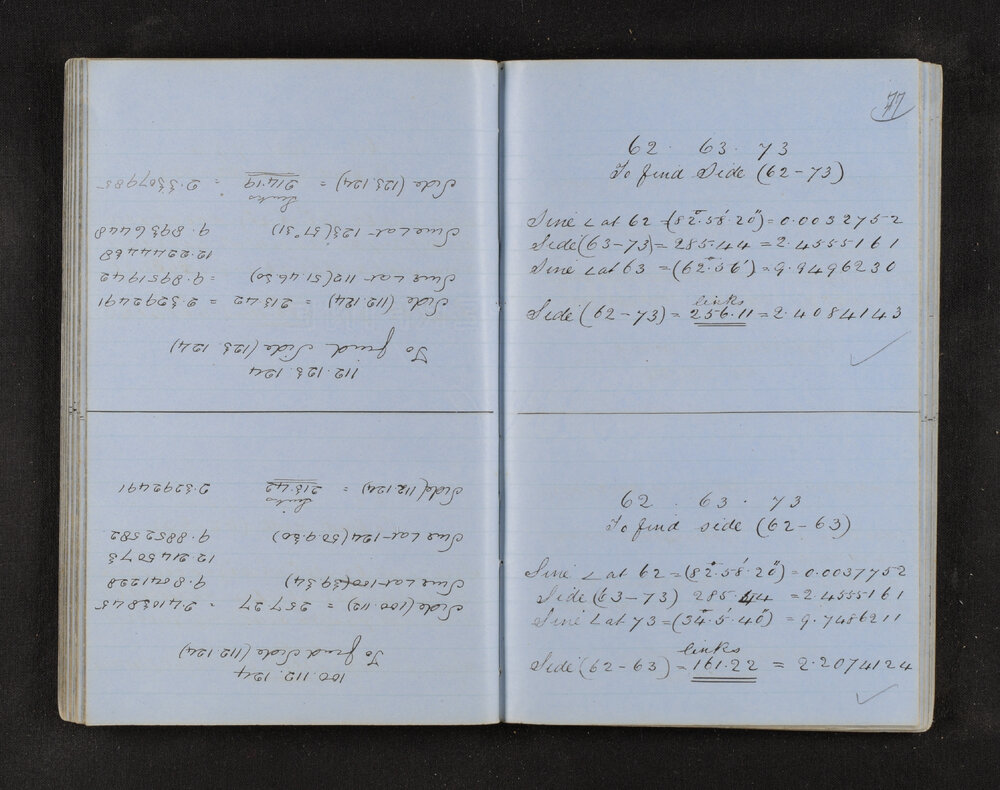 100.112.124
To find Side (112.124)
Side (100.112) = 257.27 = 2.4103845
Sine L at 100 (39.34) 9.8041228
12.2145073
Sine L at 124 (50.9.30) 9.8852582
links
Side (112.124) = 213.42 2.3292491
112.123.124
To find Side (123.124)
Side (112.124) = 213.42 = 2.3292491
Sine L at 112 (51.46.30) = 9.8951942
12.2244433
Sine L at 123 (51°31) 9.8936448
links
Side (123.124) = 214.19 = 2.3307985
77
62 . 63 . 73
To find Side (62-73)
Sine ∠ at 62 (82°.58'.20") = 0.0032752
Side (63-73) = 285.44 = 2.4555161
Sine ∠ at 63 = (62°.56') = 9.9496230
links
Side (62-73) = 256.11 = 2.4084143
62 . 63 . 73
To find side (62-63)
Sine ∠ at 62 = (82°.58'.20") = 0.0032752
Side (63-73) 285.44 = 2.4555161
Sine ∠ at 73 = (34°.5'.40") = 9.7486211
links
Side (62-63) = 161.22 = 2.2074124